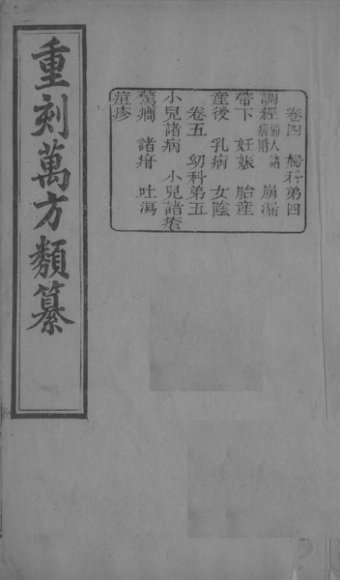 重刻萬方類纂
卷四 婦科第四
調經 婦人諸病附 崩漏
帶下 妊娠 胎產
產後 乳病 女陰
卷五 幼科第五
小兒諸病 小兒諸瘡
驚癇 諸疳 吐瀉
痘疹